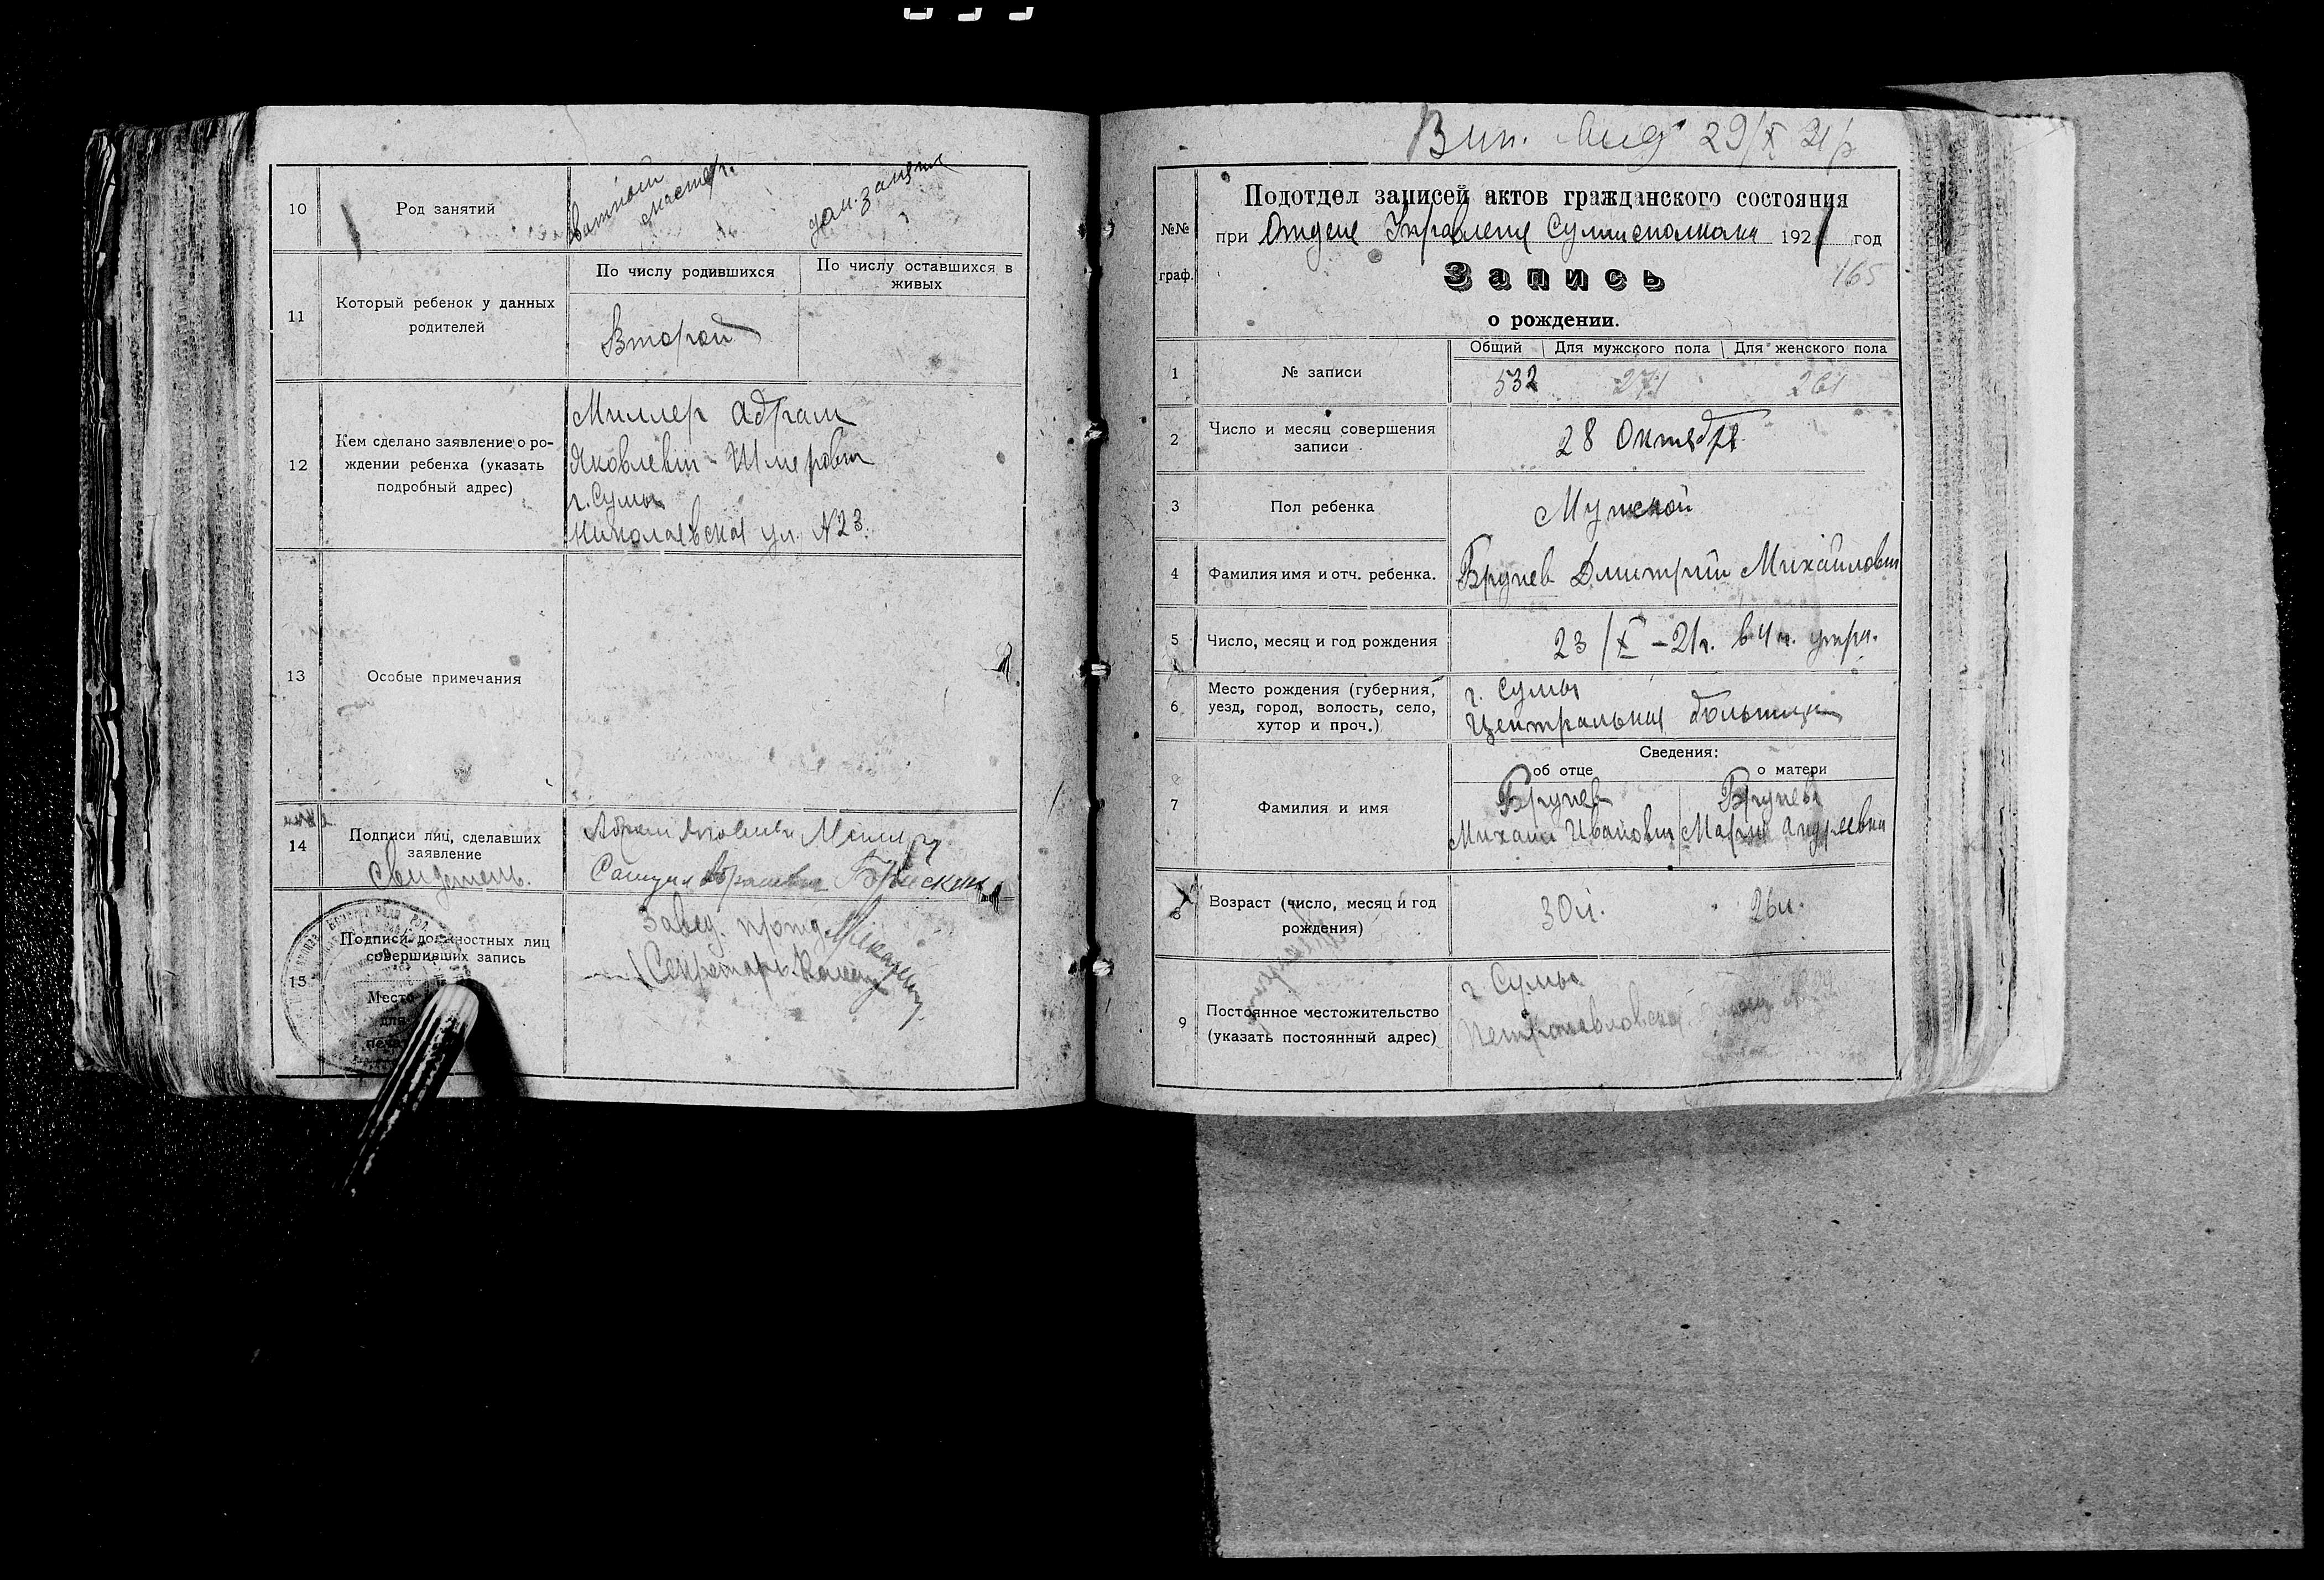 10
Род занятий
ватный
мастер.
дом. занятия
11
Который ребенок у данных
родителей
По числу родившихся
По числу оставшихся в
живых
Второй
12
Кем сделано заявление о ро-
ждении ребенка (указать
подробный адрес)
Миллер Абрам
Яковлевич-Шмерович
г. Сумы
Николаевская ул. №23.
13
Особые примечания
14
Подписи лиц, сделавших
заявление
Свидетель.
Абрам Яковлевич Миллер
Самуил Абрамович Брискин
15
Подписи должностных лиц
совершивших запись
Место
для
печати
Завед.
Секретарь
Вип.
29/X 21 р
№№
граф.
Подотдел записей актов гражданского состояния
при Отделе Управления Сумисполкома 1921 год
Запись
165
о рождении.
1
№ записи
Общий
Для мужского пола
Для женского пола
532
271
261
2
Число и месяц совершения
записи
28 Октября
3
Пол ребенка
Мужской
4
Фамилия имя и отч. ребенка.
Брунев Дмитрий Михайлович
5
Число, месяц и год рождения
23/X-21г. в 4 ч. утра.
6
Место рождения (губерния,
уезд, город, волость, село,
хутор и проч.)
г. Сумы
Центральная больница
Сведения:
об отце
о матери
7
Фамилия и имя
Брунев
Михаил Иванович
Брунева
Мария Андреевна
8
Возраст (число, месяц и год
рождения)
30 л.
26 л.
9
Постоянное местожительство
(указать постоянный адрес)
г. Сумы
Петропавловская